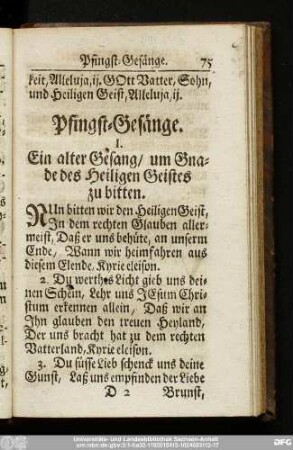 Pfingst-Gesänge. 75
keit, Alleluja, ij. GOtt Vatter, Sohn,
und Heiligen Geist, Alleluja, ij.
Pfingst-Gesänge.
I.
Ein alter Gesang/ um Gna-
de des Heiligen Geistes
zu bitten.
NUn bitten wir den Heiligen Geist,
In dem rechten Glauben aller-
meist, Daß er uns behüte, an unserm
Ende, Wann wir heimfahren aus
diesem Elende, Kyrie eleison.
2. Du werthes Licht gieb uns dei-
nen Schein, Lehr uns JEsum Chri-
stum erkennen allein, Daß wir an
Ihn glauben den treuen Heyland,
Der uns bracht hat zu dem rechten
Vatterland, Kyrie eleison.
3. Du süsse Lieb schenck uns deine
Gunst, Laß uns empfinden der Liebe
D 2 Brunst,
Universitäts- und Landesbibliothek Sachsen-Anhalt